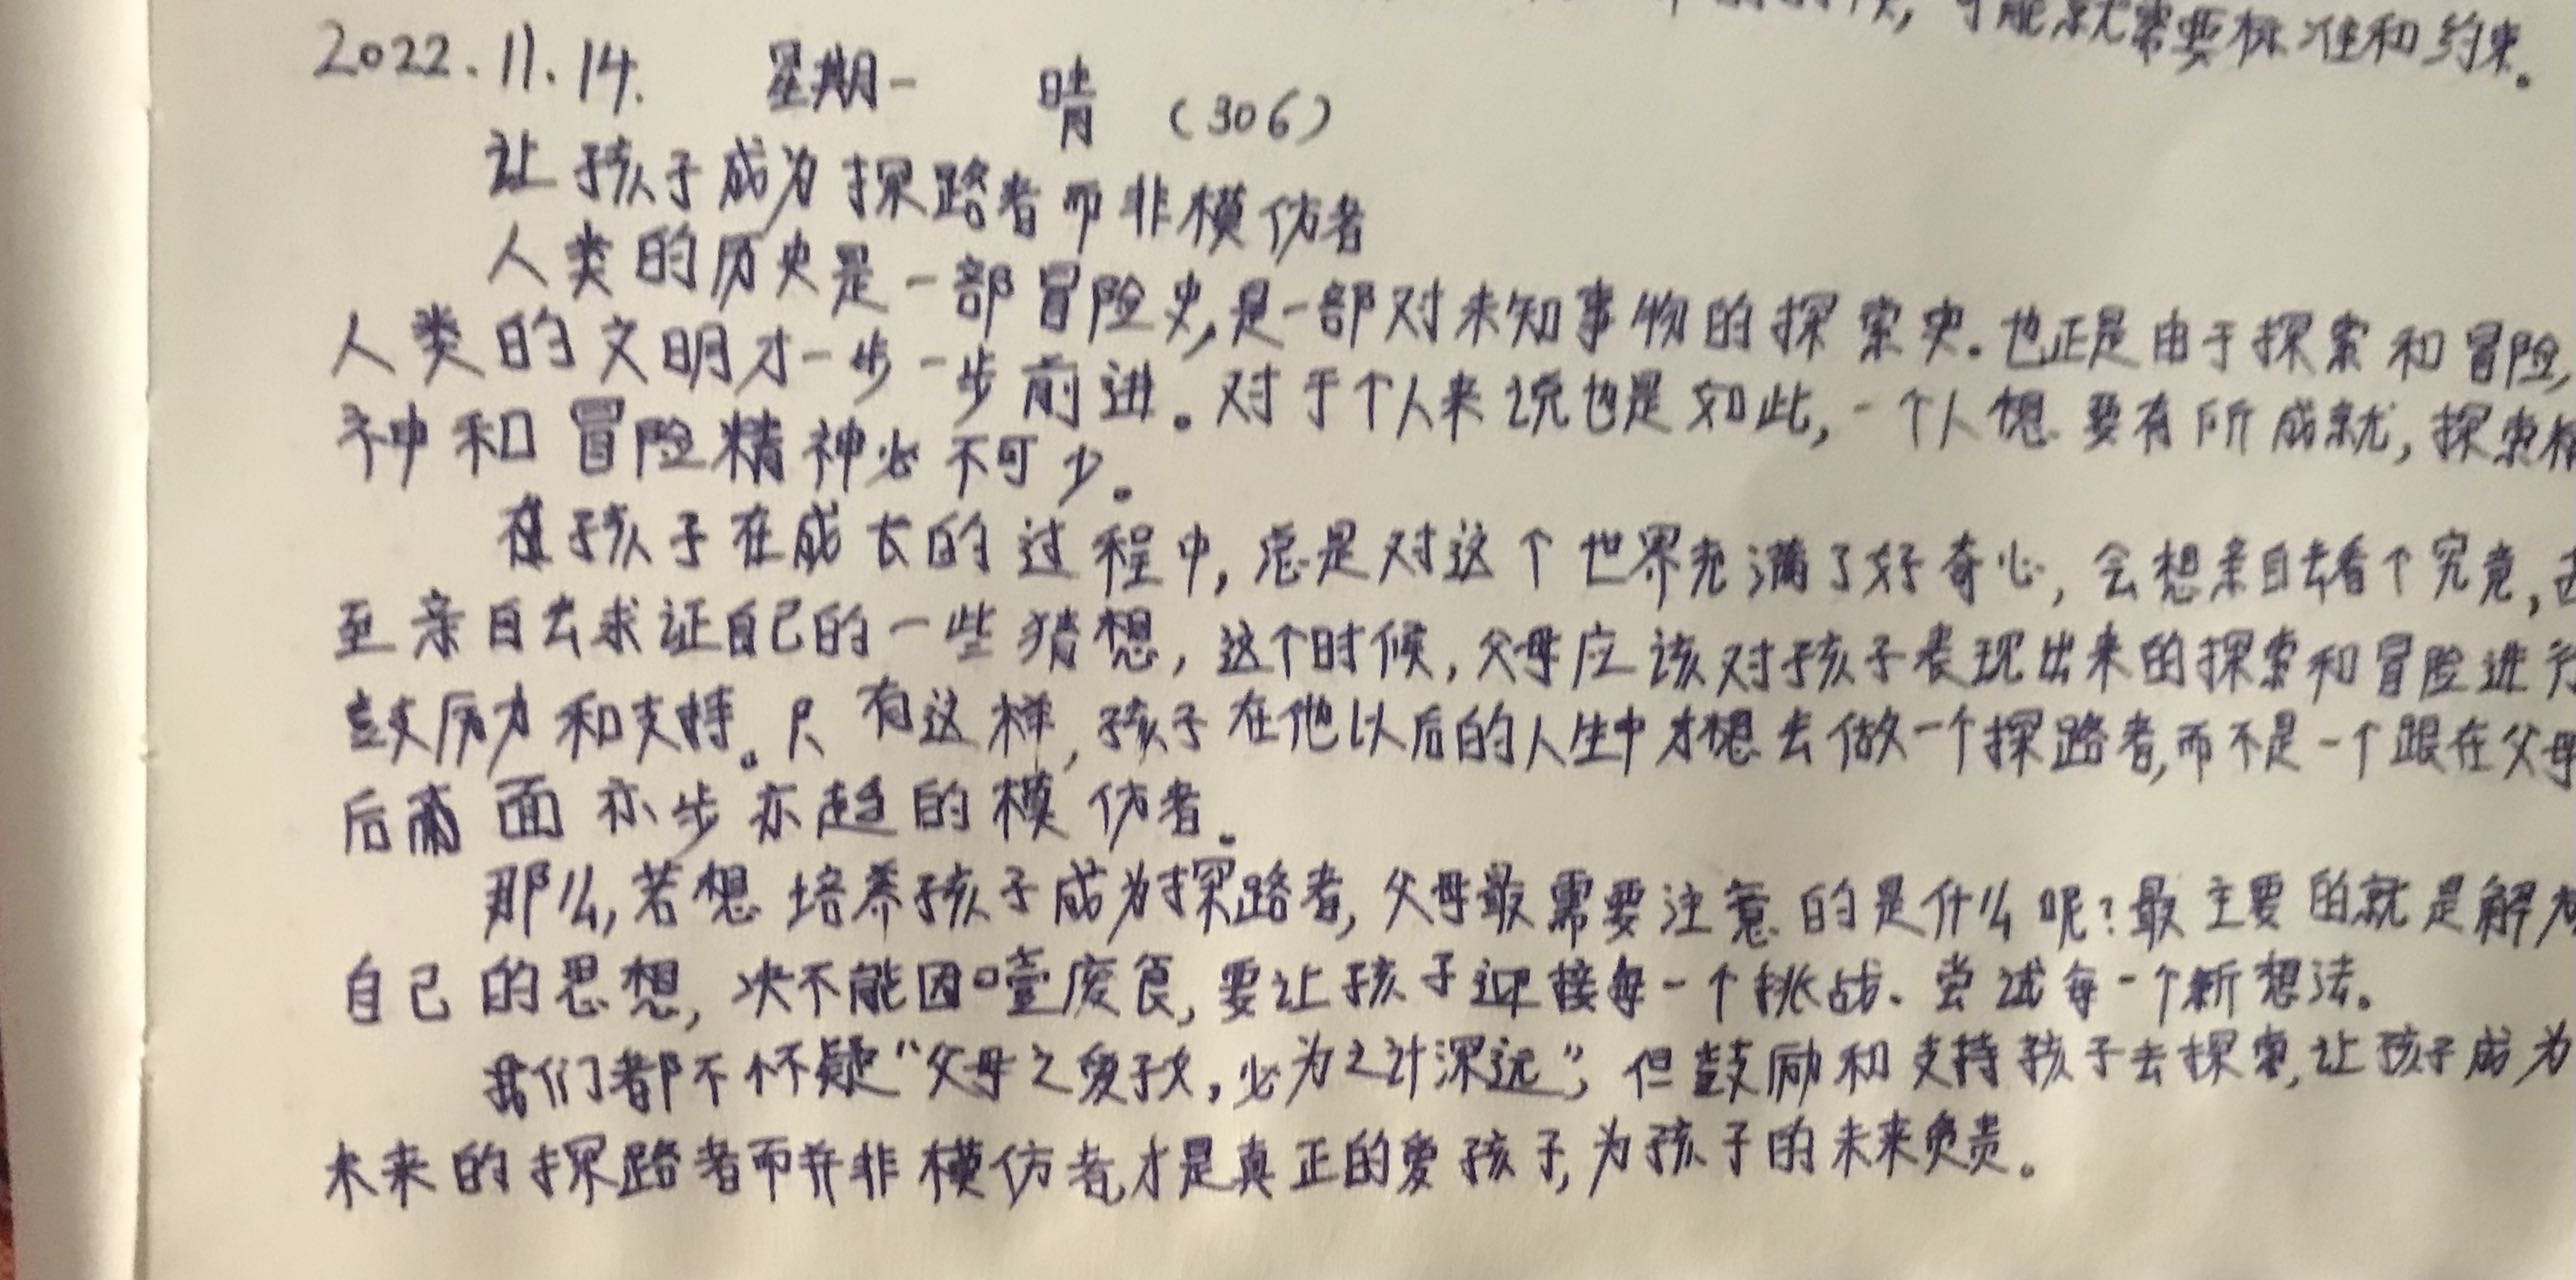 可能就需要标准和约束。
2022.11.14. 星期一 晴 (306)
让孩子成为探路者而非模仿者
人类的历史是一部冒险史,是一部对未知事物的探索史.也正是由于探索和冒险,
人类的文明才一步一步前进。对于个人来说也是如此,一个人想要有所成就,探索精
神和冒险精神必不可少。
在孩子在成长的过程中,总是对这个世界充满了好奇心,会想亲自去看个究竟,甚
至亲自去求证自己的一些猜想,这个时候,父母应该对孩子表现出来的探索和冒险进行
鼓励和支持。只有这样,孩子在他以后的人生中才想去做一个探路者,而不是一个跟在父母
后面亦步亦趋的模仿者。
那么,若想培养孩子成为探路者,父母最需要注意的是什么呢?最主要的就是解放
自己的思想,决不能因噎废食,要让孩子迎接每一个挑战、尝试每一个新想法。
我们都不怀疑“父母之爱子女,必为之计深远”,但鼓励和支持孩子去探索,让孩子成为
未来的探路者而并非模仿者,才是真正的爱孩子,为孩子的未来负责。